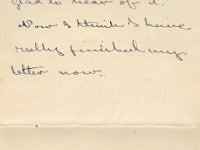 glad to hear of it.
Now I think I have
really finished my
letter now.